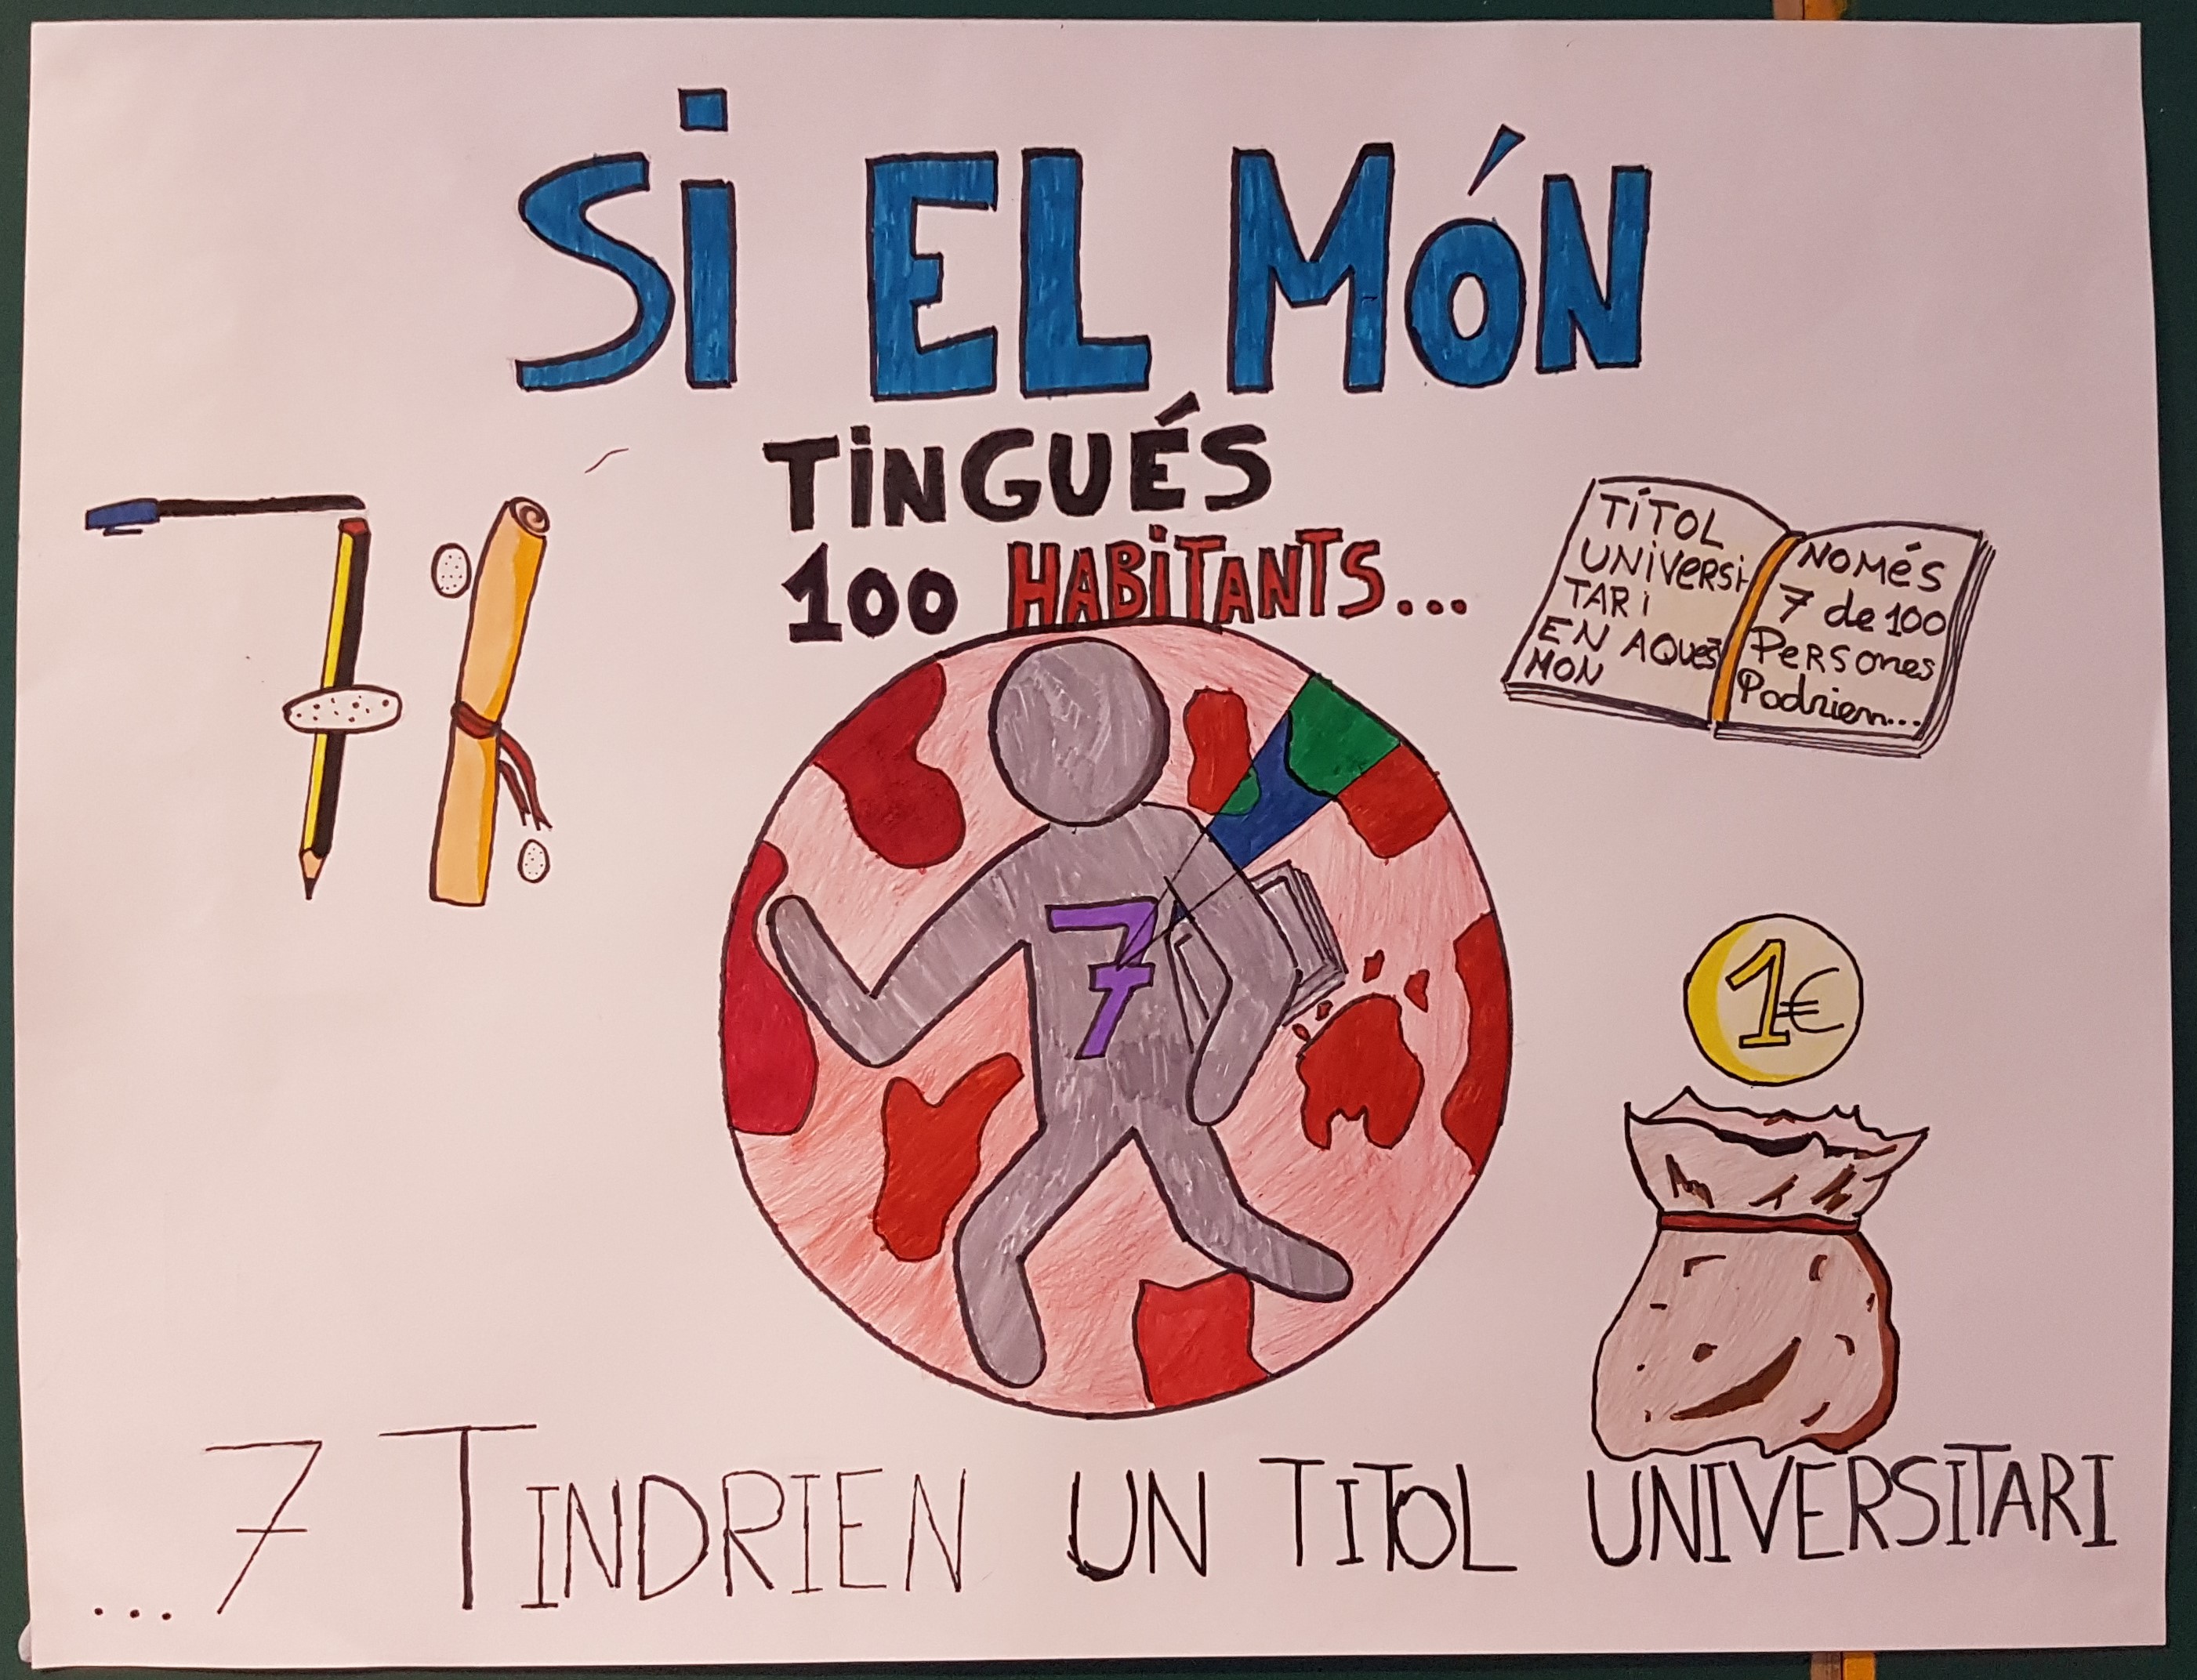 Si EL MÓN
TiNGUÉS
100 HABiTANTS...
7%
TÍTOL
UNiVeRSi
TARi
EN AQUEST
MON
NOMéS
7 de 100
PeRSones
Podrien...
7
1€
...7 TINDRIEN UN TITOL UNIVERSITARI